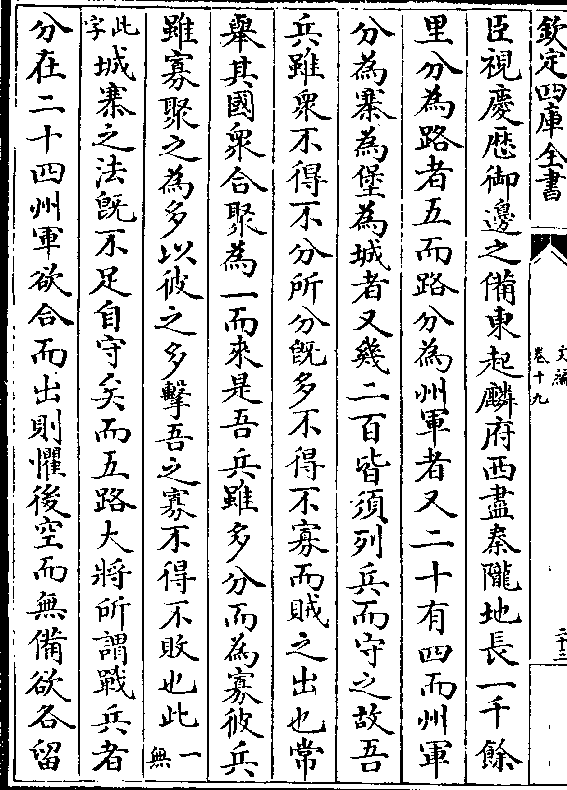 欽定四庫全書
文編
卷十九
二十三
臣視慶厯御邊之備東起麟府西盡秦隴地長一千餘
里分為路者五而路分為州軍者又二十有四而州軍
分為寨為堡為城者又幾二百皆須列兵而守之故吾
兵雖衆不得不分所分既多不得不寡而賊之出也常
舉其國衆合聚為一而來是吾兵雖多分而為寡彼兵
雖寡聚之為多以彼之多擊吾之寡不得不敗也此一無
此字城寨之法既不足自守矣而五路大將所謂戰兵者
分在二十四州軍欲合而出則懼後空而無備欲各留